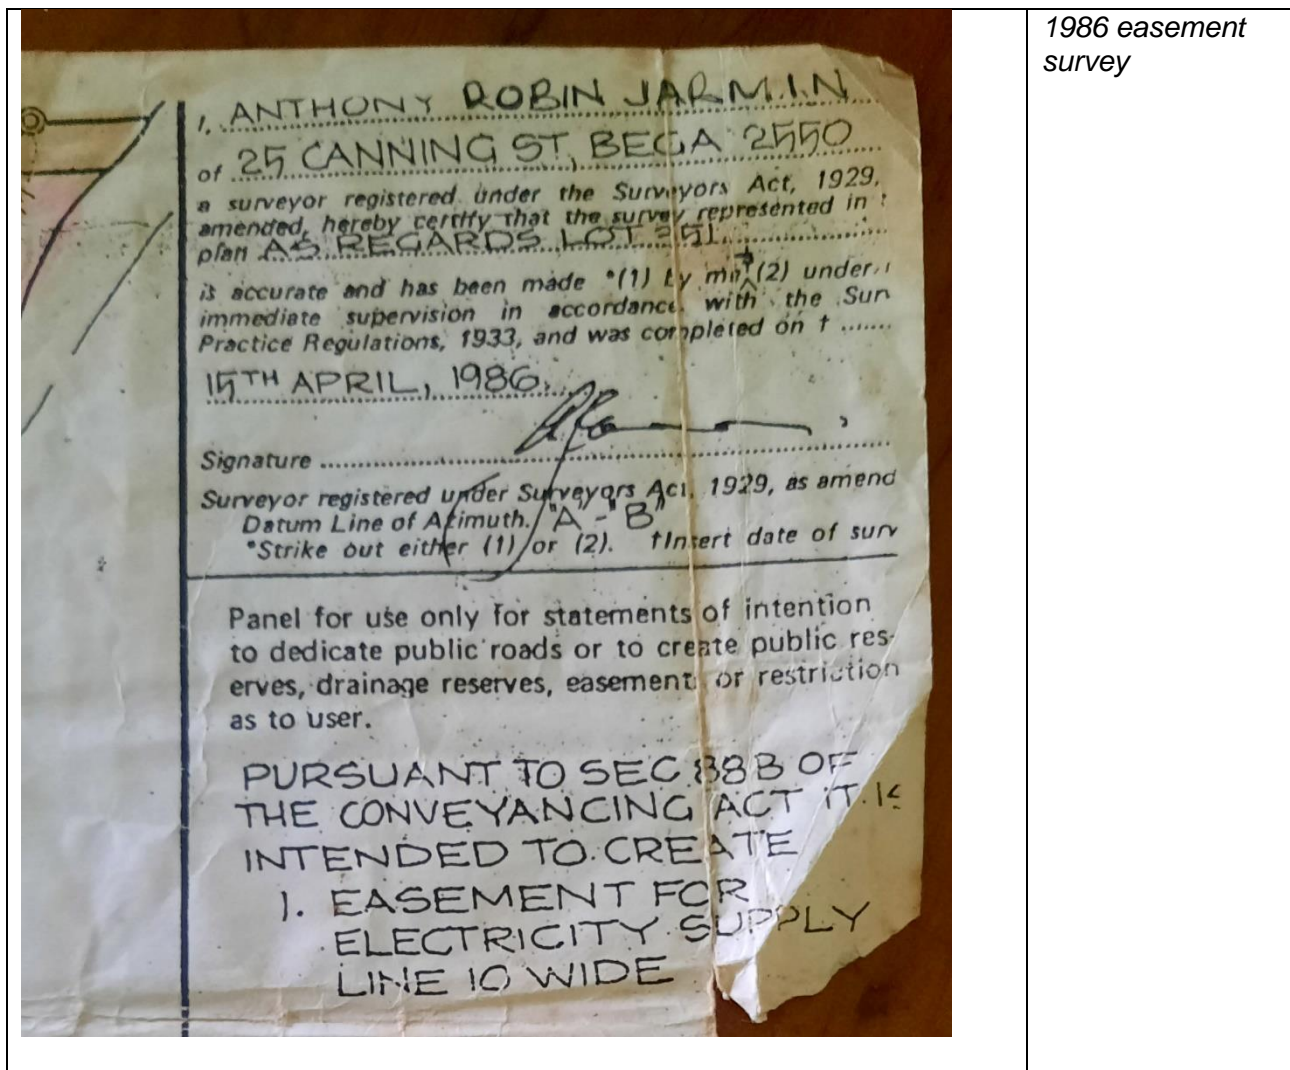 1986 easement
survey
I, ANTHONY ROBIN JARMIN
of 25 CANNING ST, BEGA 2550
a surveyor registered under the Surveyors Act, 1929,
amended, hereby certify that the survey represented in
plan AS REGARDS LOT 251
is accurate and has been made *(1) by me (2) under
immediate supervision in accordance with the Sur
Practice Regulations, 1933, and was completed on †
15TH APRIL, 1986.
Signature
Surveyor registered under Surveyors Act, 1929, as amend
Datum Line of Azimuth. "A"-"B"
*Strike out either (1) or (2). †Insert date of surv
Panel for use only for statements of intention
to dedicate public roads or to create public res-
erves, drainage reserves, easements or restriction
as to user.
PURSUANT TO SEC 88B OF
THE CONVEYANCING ACT IT IS
INTENDED TO CREATE
1. EASEMENT FOR
ELECTRICITY SUPPLY
LINE 10 WIDE